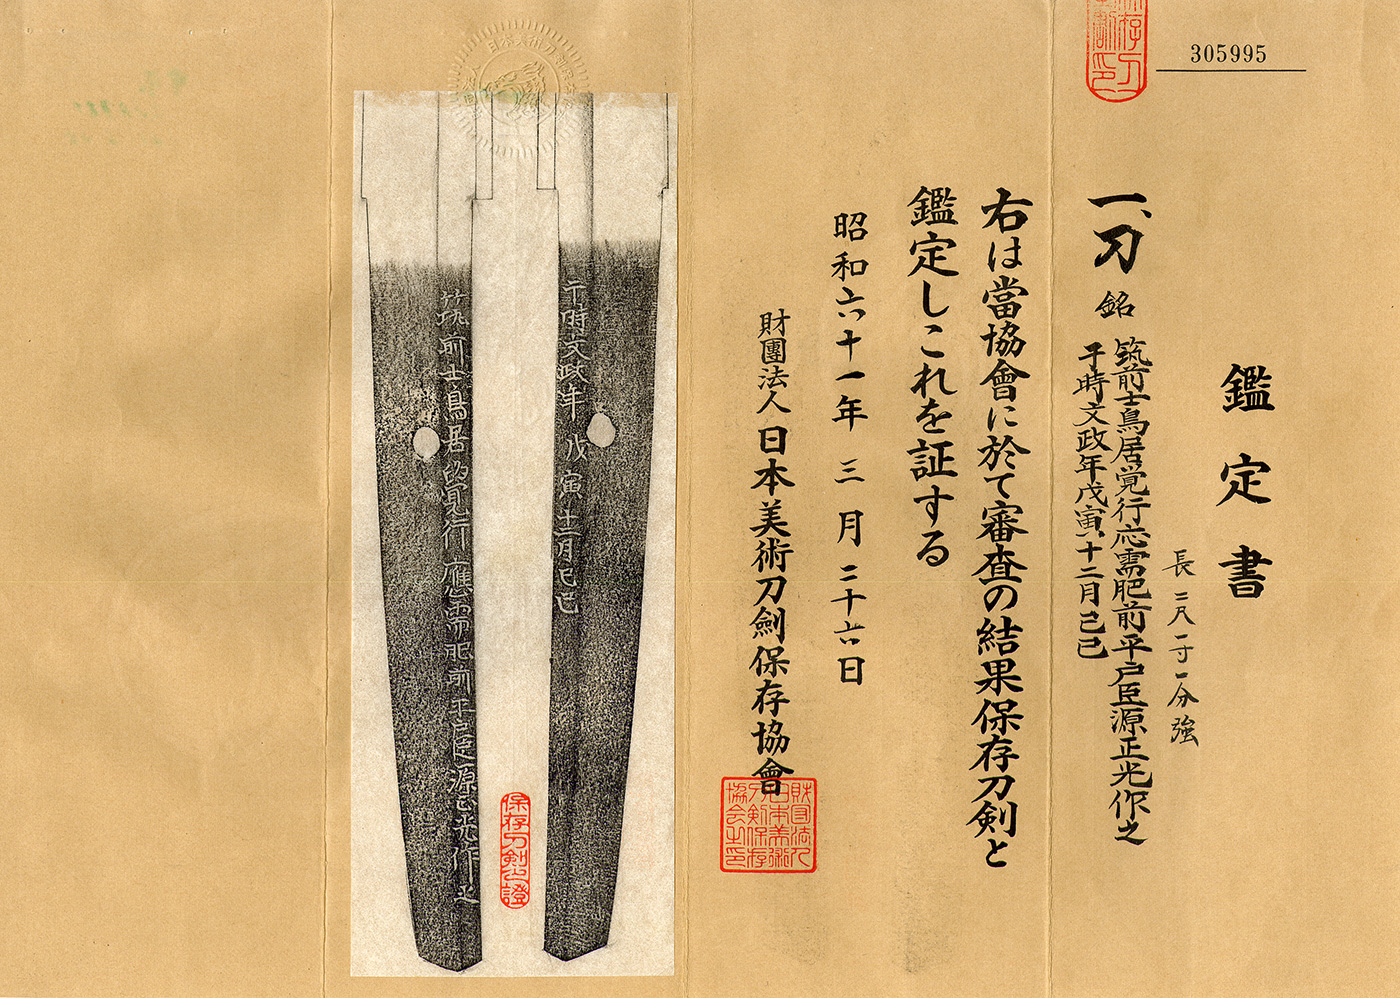 305995
鑑定書
長 二尺一寸一分強
一、刀 銘 筑前士鳥居覚行応需肥前平戸臣源正光作之
于時文政年戊寅十二月己巳
右は當協會に於て審査の結果保存刀剣と
鑑定しこれを証する
昭和六十一年三月二十六日
財團法人日本美術刀劍保存協會
財団法人日本美術刀剣保存協会之印
于時文政年戊寅十二月己巳
保存刀剣之證
筑前士鳥居覚行應需肥前平戸臣源正光作之